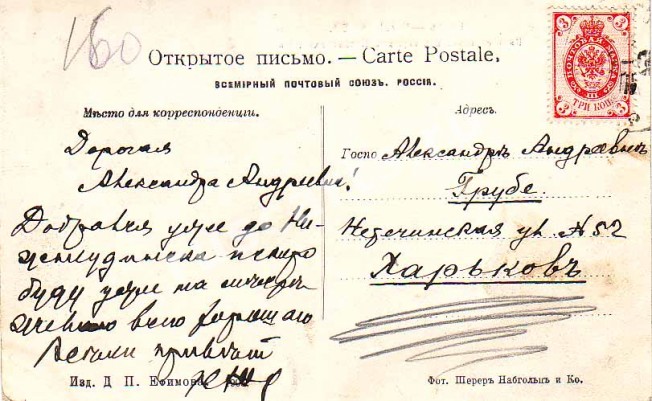 160
Открытое письмо. — Carte Postale.
ВСЕМІРНЫЙ ПОЧТОВЫЙ СОЮЗЪ. РОССІЯ.
Мѣсто для корреспонденціи.
Дорогая
Александра Андреевна!
Добрался уже до Ни-
жнеудинска скоро
буду уже на
всего хорошаго
привѣт
Адресъ.
Госпо Александрѣ Андреевнѣ
Грубе
ул. № 52
Харьковъ
3 3
ПОЧТОВАЯ МАРКА
ТРИ КОП.
3 3
Изд. Д. П. Ефимова.
Фот. Шереръ Набгольцъ и Ко.